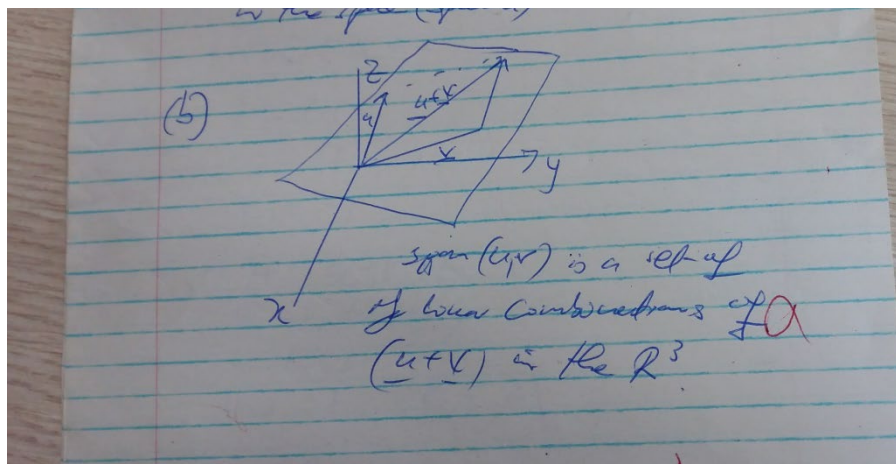 in the space (
(b)
z
u
u+v
v
y
x
span (u,v) is a set of
of linear combinations of
(u+v) in the R³